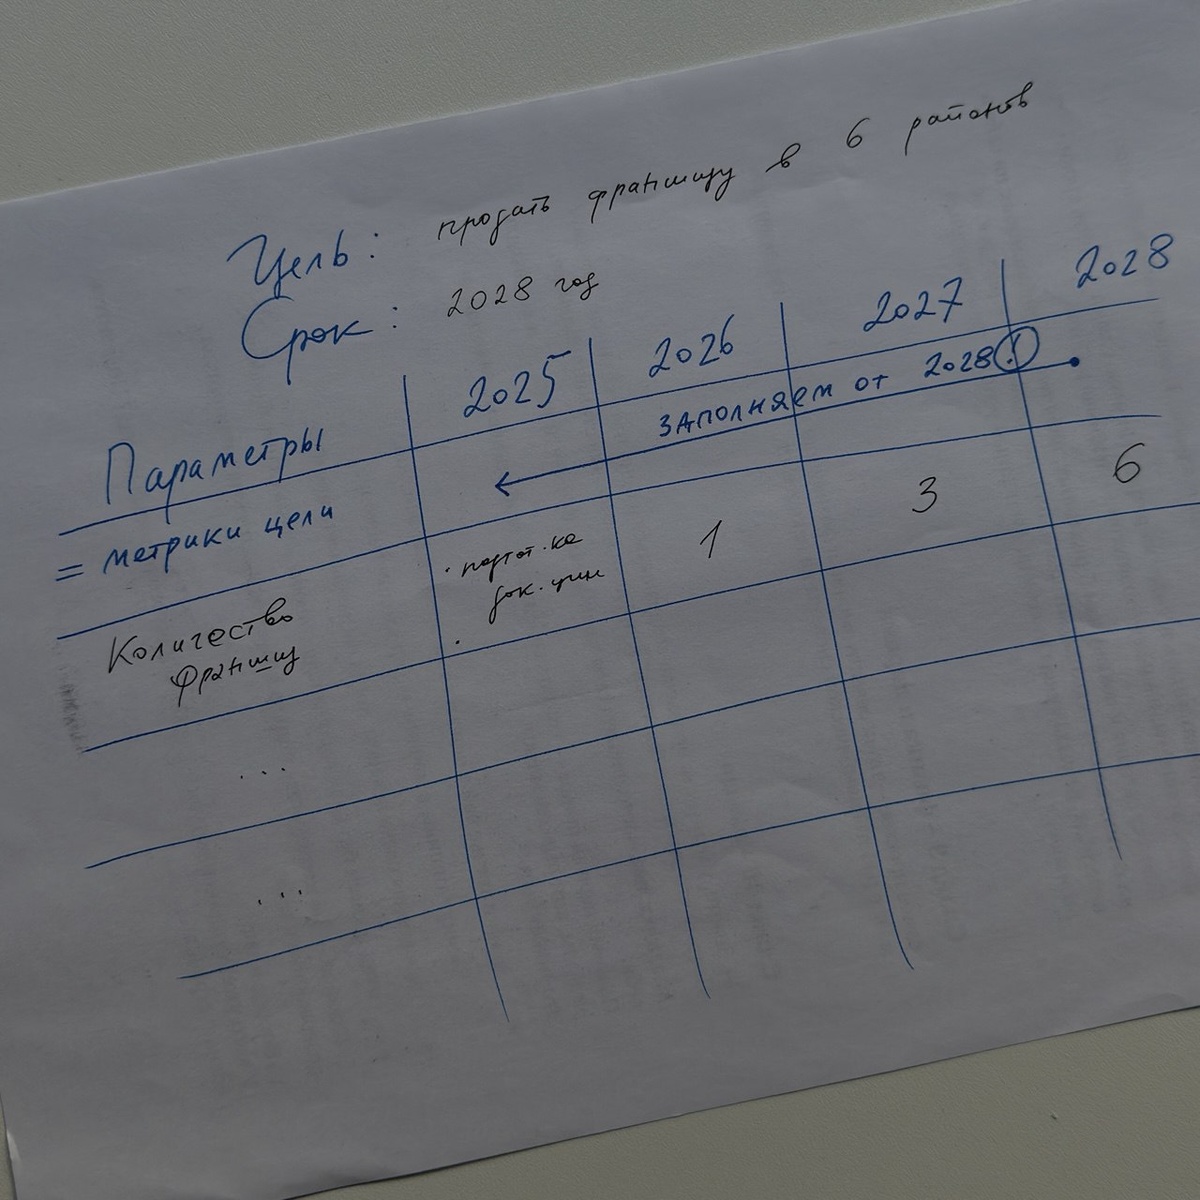 Цель: продать франшизу в 6 районов
Срок: 2028 год
Параметры 2025 2026 2027 2028
= метрики цели
заполняем от 2028!
Количество
франшиз
· подгот.ка
док.ции
·
1 3 6
...
...